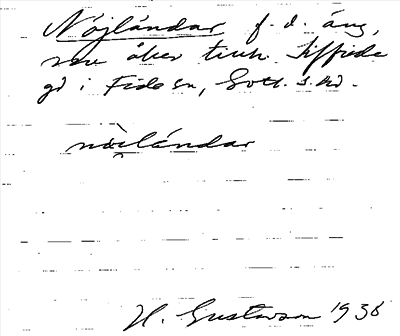 Nöjländar f. d. äng,
nu åker tillh. Siffride
gd i Fide sn, Gotl. s. hd.
nö̀i̯lándar
H. Gustavson 1938